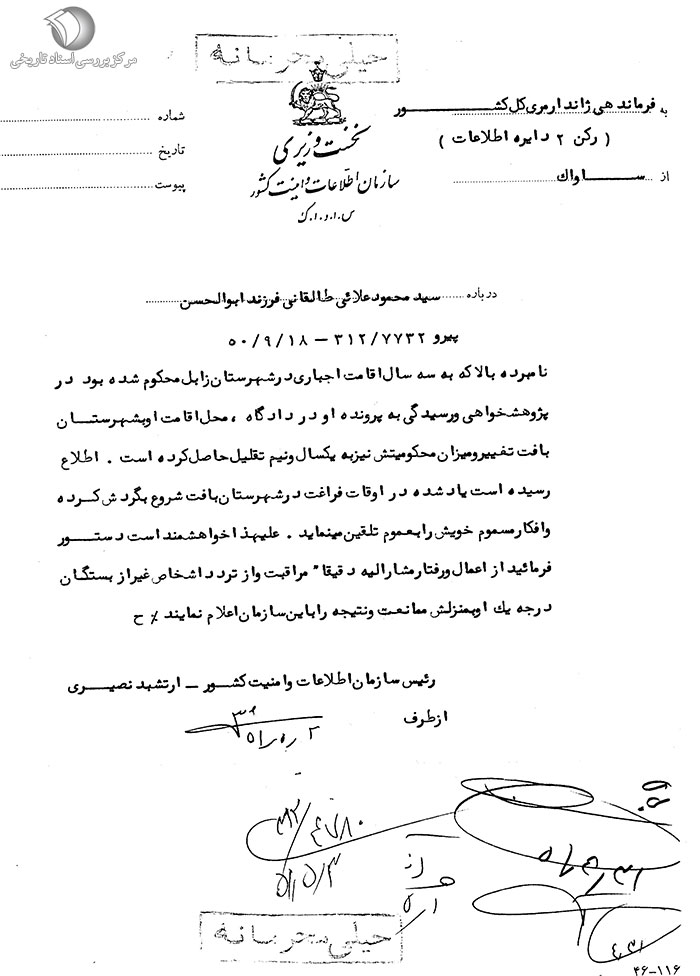 مرکز بررسی اسناد تاریخی
خیلی محرمانه
به فرماندهی ژاندارمری کل کشــــــور
( رکن ۲ دایره اطلاعات )
از ســــاواک
نخست وزیری
سازمان اطلاعات و امنیت کشور
س.ا.و.ا.ک
شماره
تاریخ
پیوست
درباره سید محمود علائی طالقانی فرزند ابوالحسن
پیرو ۳۱۲/۷۷۳۲ – ۵۰/۹/۱۸
نامبرده بالا که به سه سال اقامت اجباری در شهرستان زابل محکوم شده بود در
پژوهشخواهی ورسیدگی به پرونده او در دادگاه ، محل اقامت او بشهرستــان
بافت تغییر و میزان محکومیتش نیز به یکسال ونیم تقلیل حاصل کرده است . اطلاع
رسیده است یاد شده در اوقات فراغت در شهرستان بافت شروع بگردش کرده
وافکار مسموم خویش را بعموم تلقین مینماید . علیهذا خواهشمند است دستــور
فرمائید از اعمال ورفتار مشارالیه دقیقا" مراقبت واز تردد اشخاص غیر از بستگان
درجه یک او بمنزلش ممانعت ونتیجه را باین سازمان اعلام نمایند ٪ ح
رئیس سازمان اطلاعات وامنیت کشــور – ارتشبد نصیــری
از طرف
۳۱۲/۴۷۸۰
۵۱/۵/۳
خیلی محرمانه
۴۶-۱۱۶